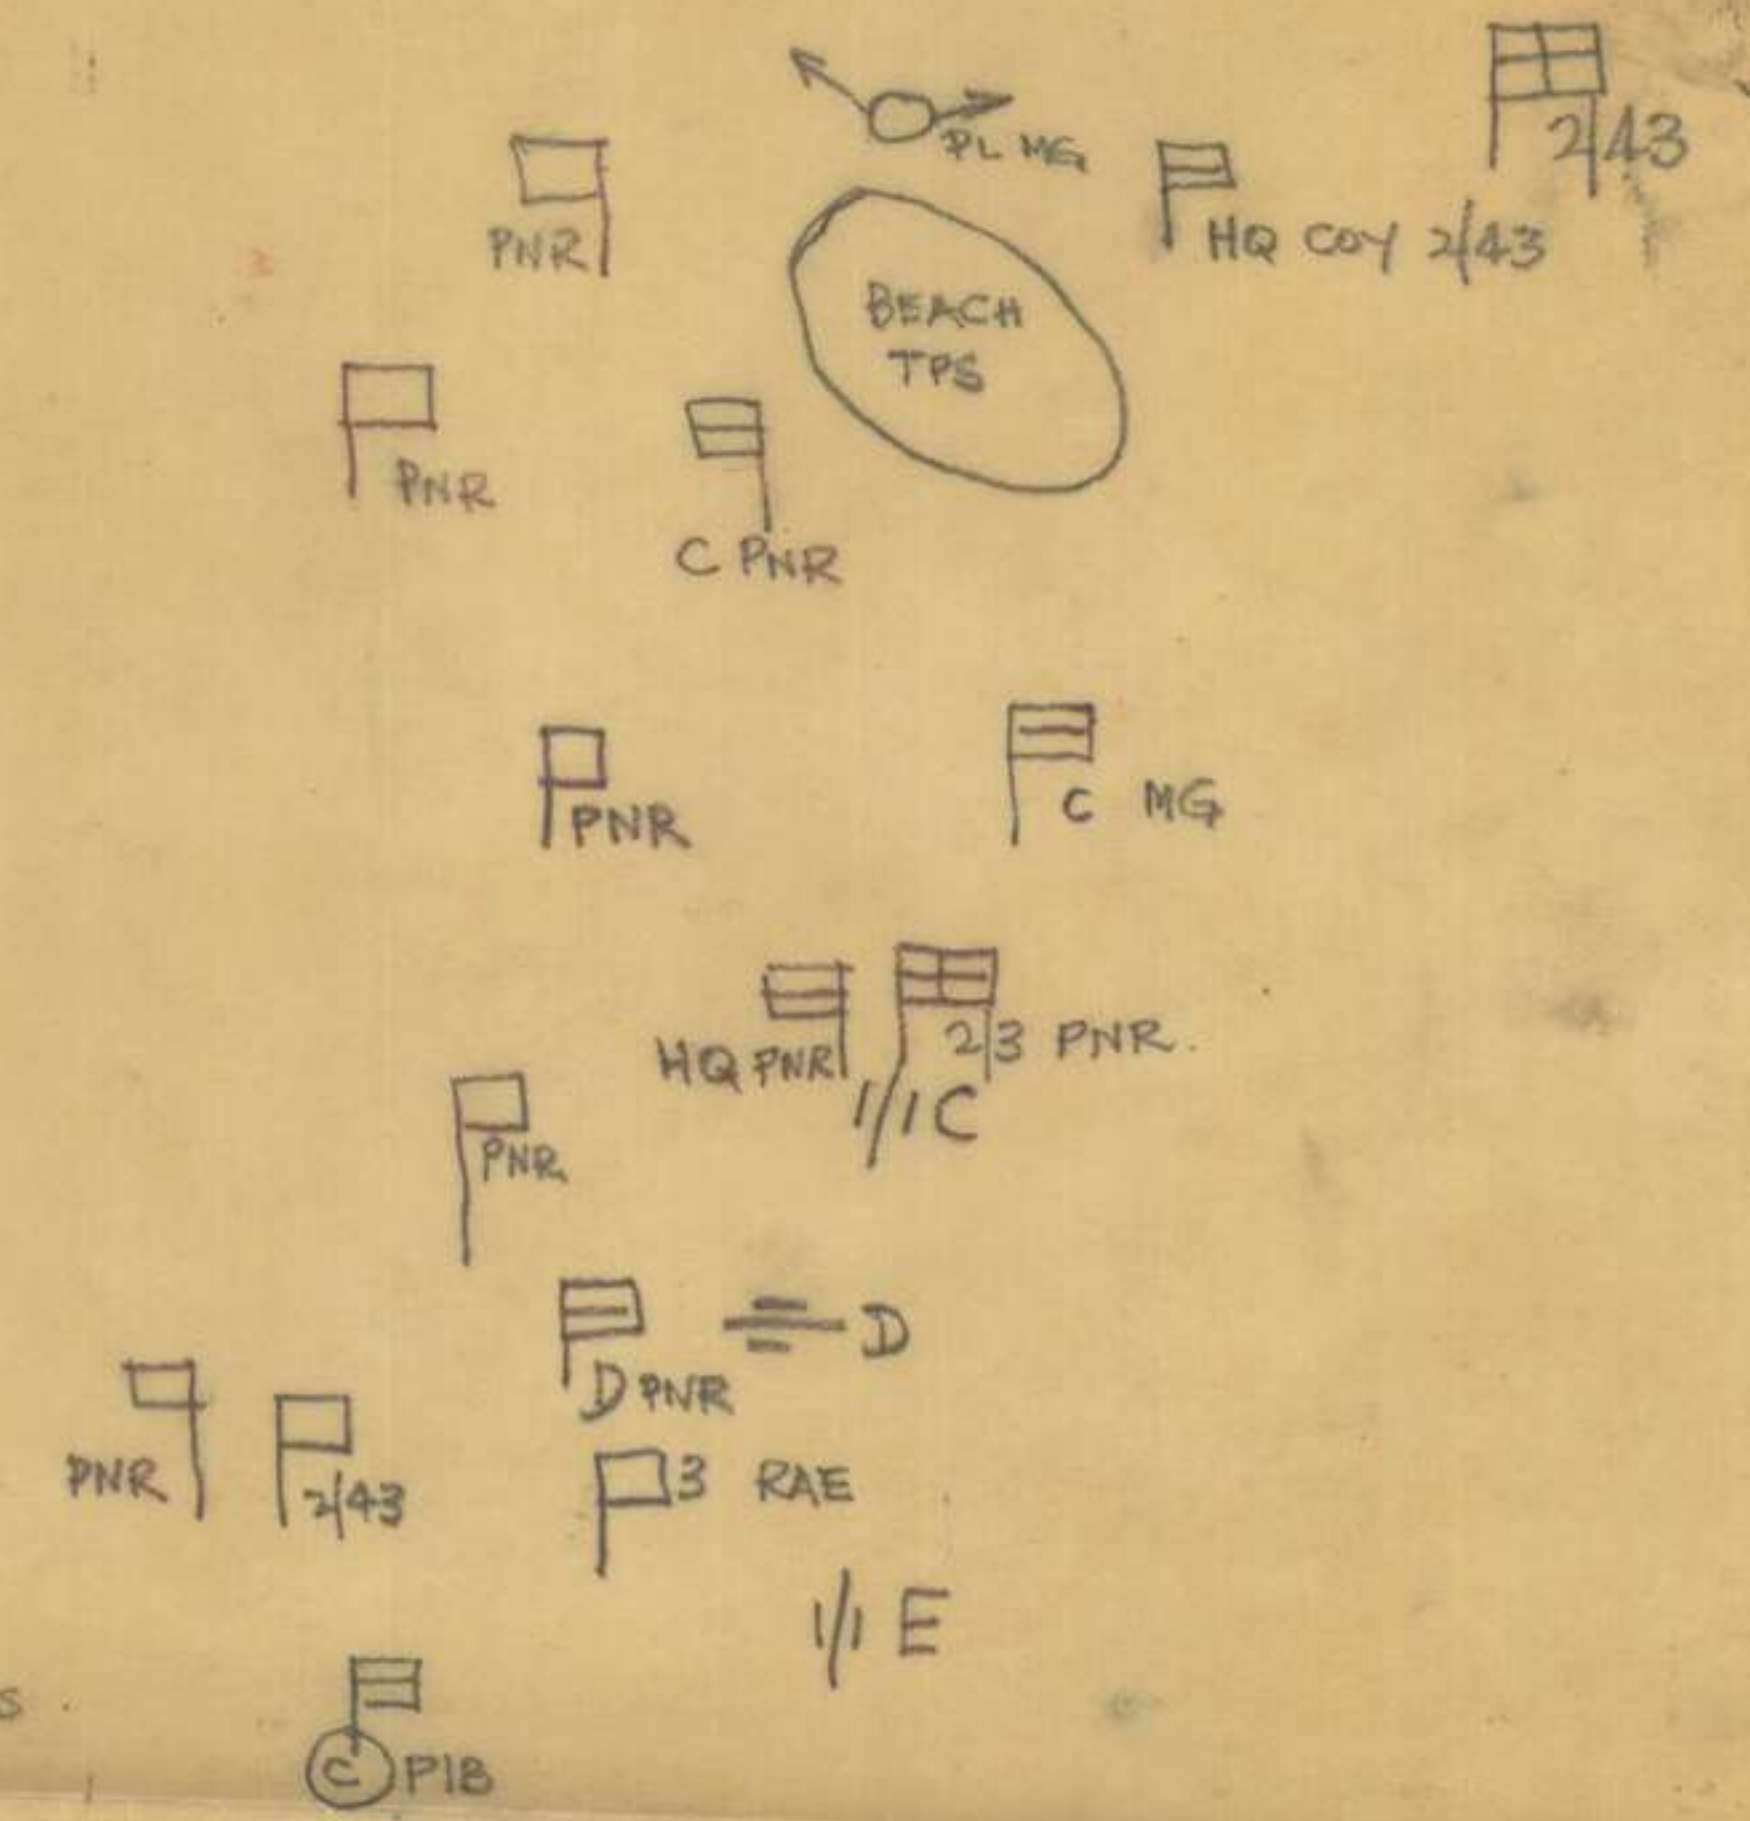 PL MG
2/43
PNR
HQ COY 2/43
BEACH
TPS
PNR
C PNR
PNR
C MG
HQ PNR
2/3 PNR.
C
PNR
D
D PNR
PNR
2/43
3 RAE
E
S.
C PIB